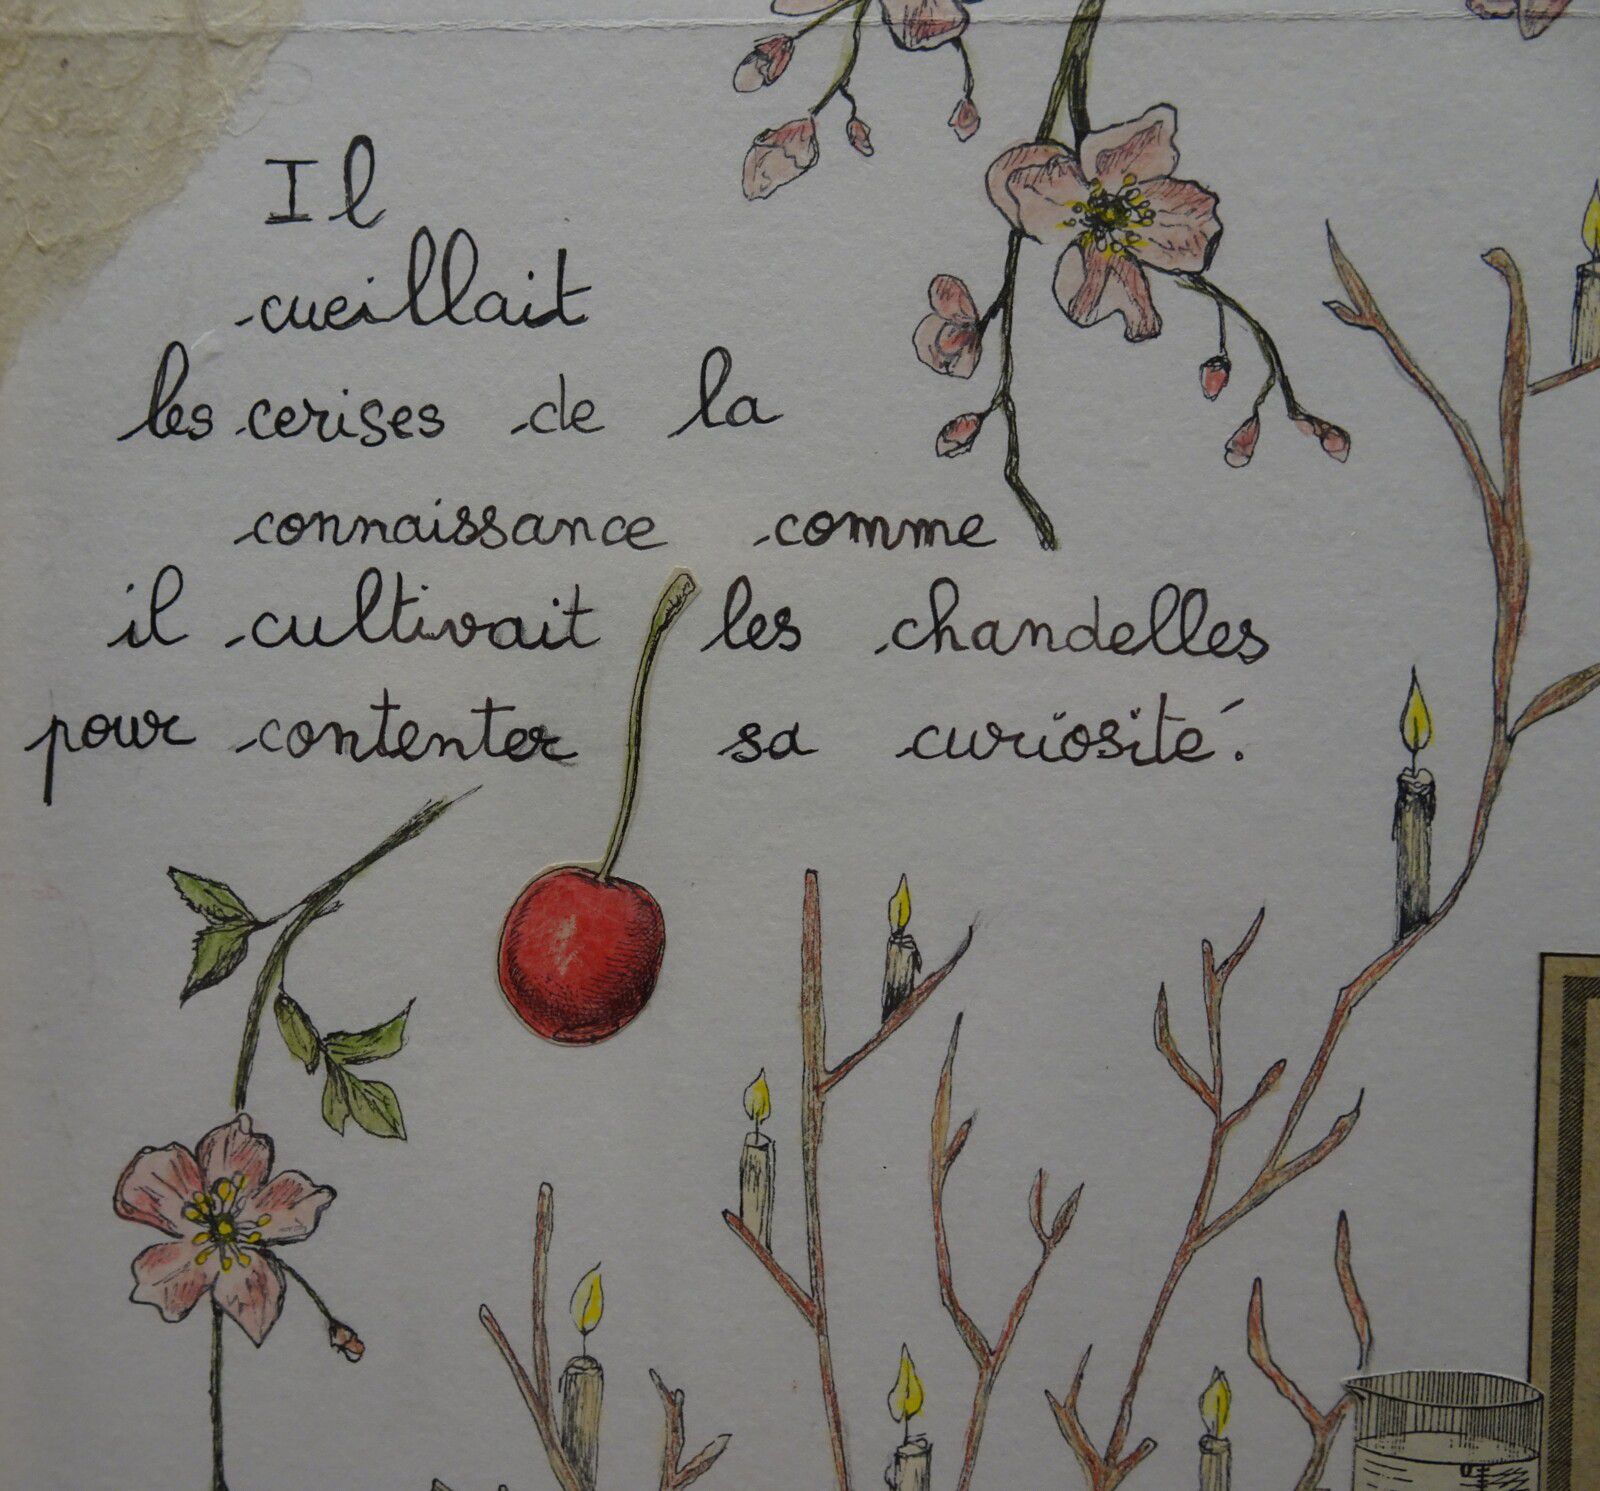 Il
cueillait
les cerises de la
connaissance comme
il cultivait les chandelles
pour contenter sa curiosité.